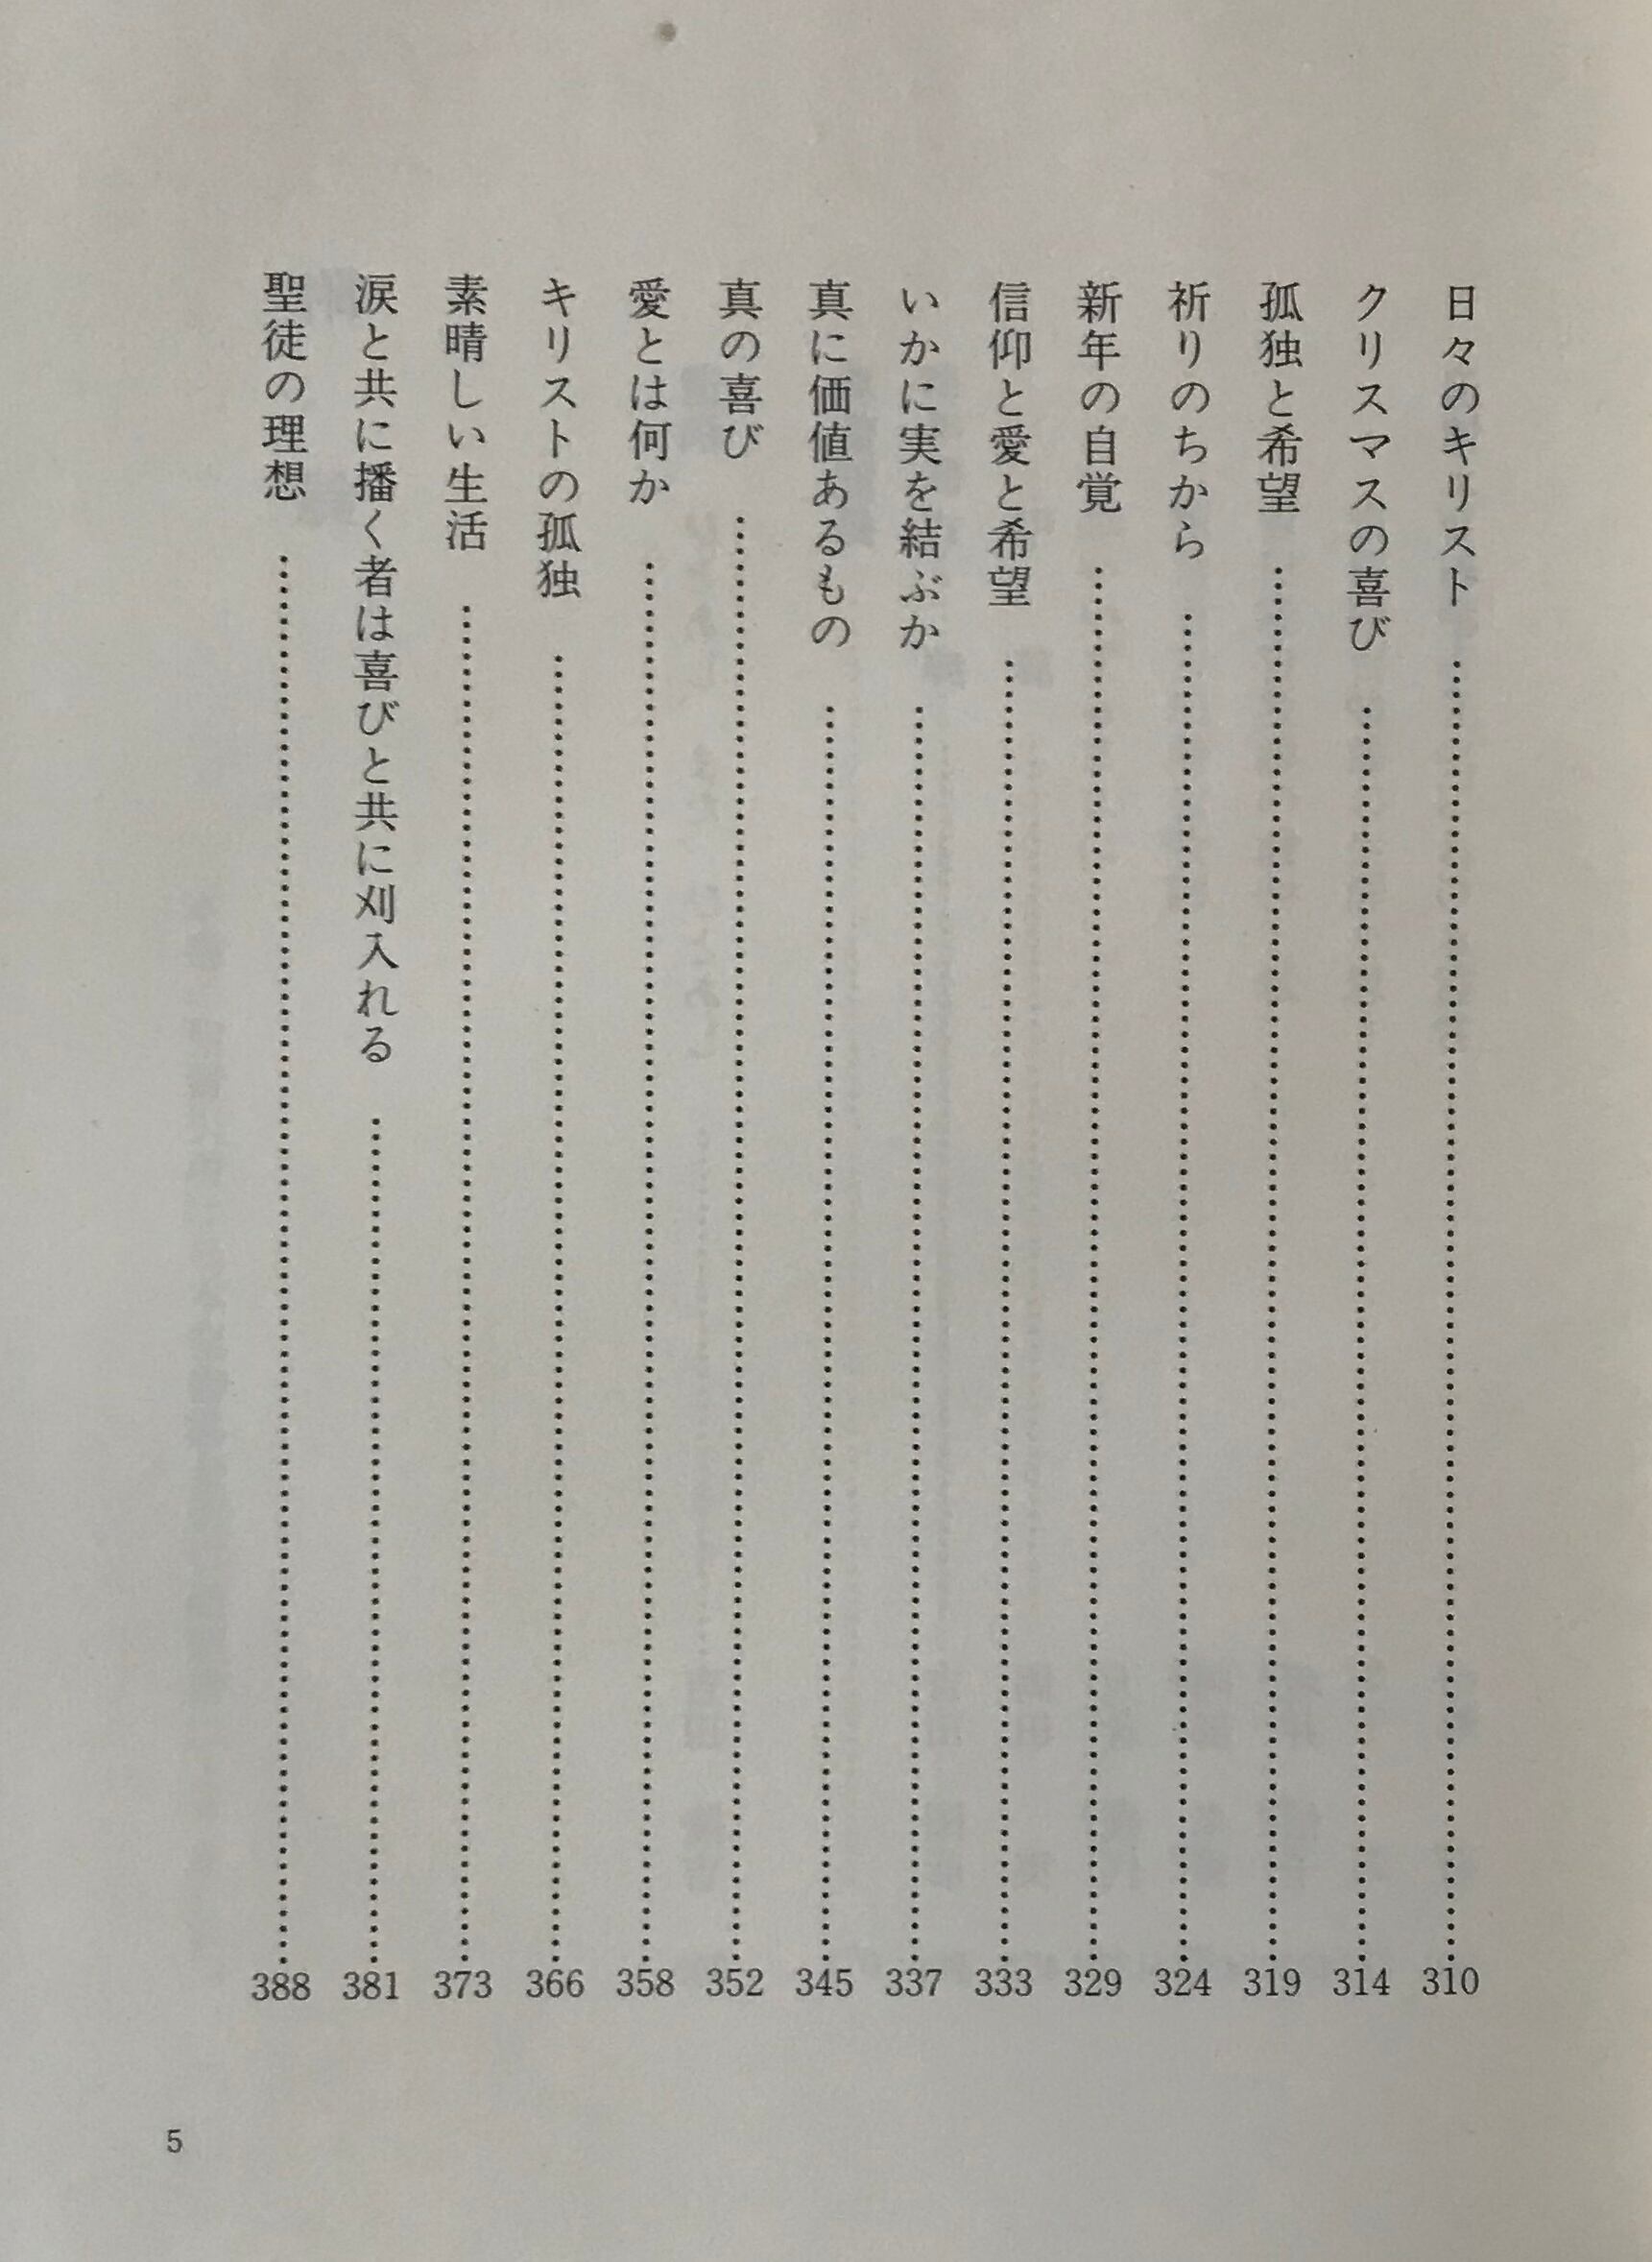 日々のキリスト……310
クリスマスの喜び……314
孤独と希望……319
祈りのちから……324
新年の自覚……329
信仰と愛と希望……333
いかに実を結ぶか……337
真に価値あるもの……345
真の喜び……352
愛とは何か……358
キリストの孤独……366
素晴しい生活……373
涙と共に播く者は喜びと共に刈入れる……381
聖徒の理想……388
5